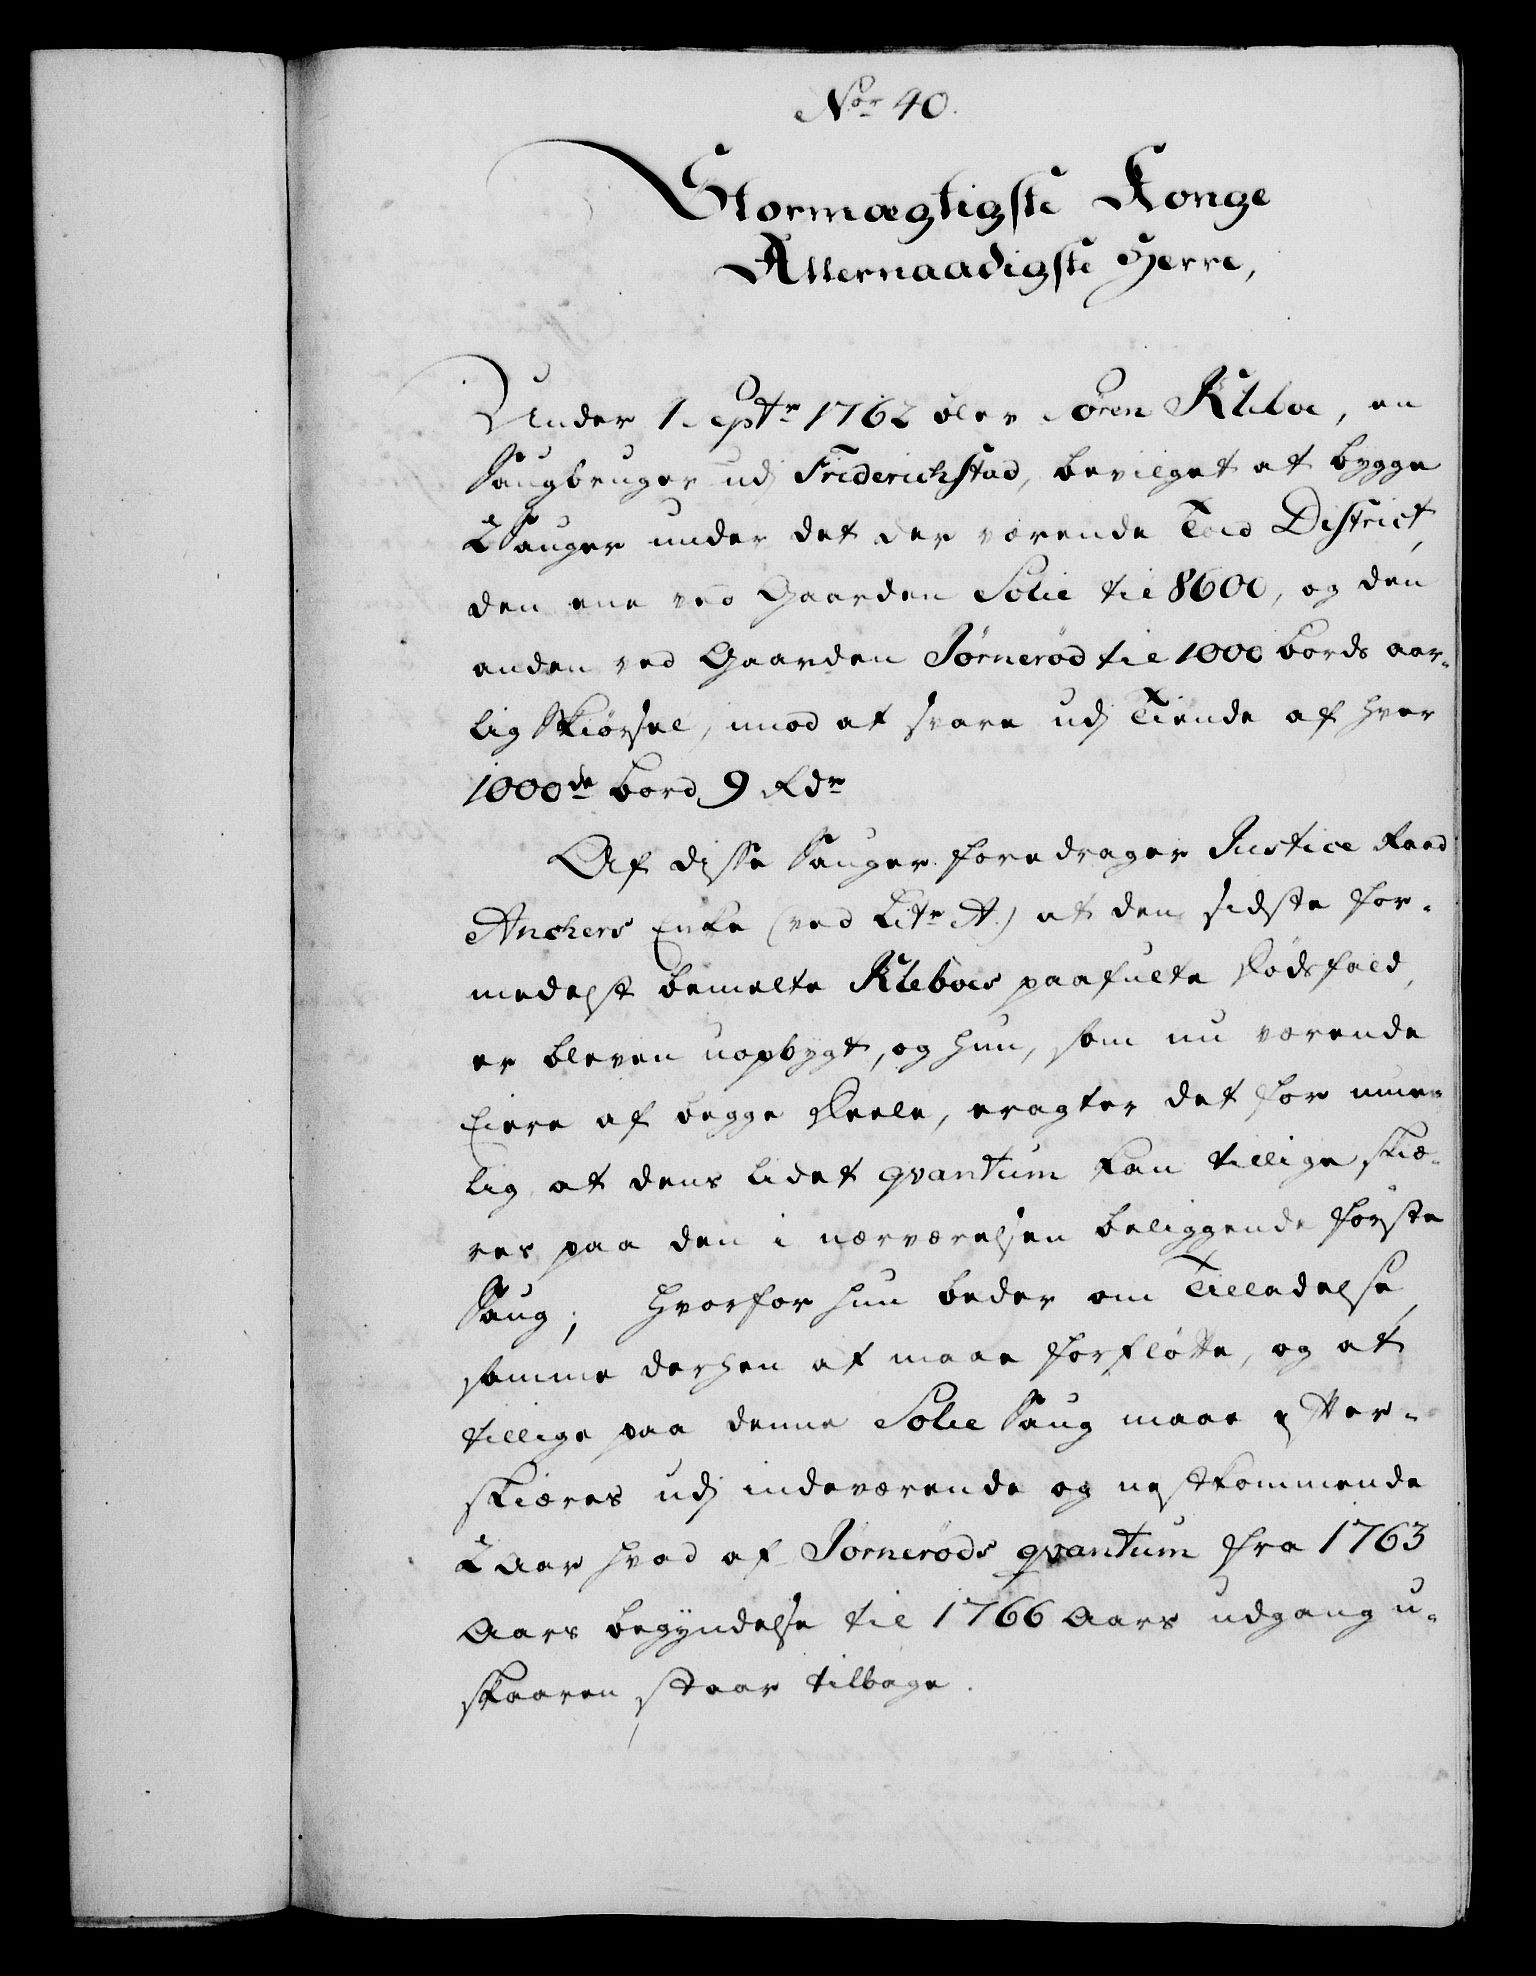 Nor 40.
Stormægtigste Konge
Allernaadigste Herre,
Under 1 Septr 1762 blev Sören Kleboe, en
Saugbruger udj Friderichstad, bevilget at bygge
2 Sauger under det der værende Told District,
den ene ved Gaarden Solie til 8600, og den
anden ved Gaarden Jörneröd til 1000 bords aar-
lig Skiørsel, imod at svare udj Tiende af hver
1000de bord 9 Rdr
Af disse Sauger foredrager Justice Raad
Anchers Enke (ved Litr A.) at den sidste for-
medelst bemelte Kleboes paafulte Dødsfald,
er bleven uopbygt, og hun, som nu værende
Eiere af begge Deele, eragter det for umue-
lig at dens lidet qvantum kan tillige skiæ-
res paa den i nærværelsen beliggende første
Saug; hvorfor hun beder om Tilladelse,
samme derhen at maae forfløtte, og at
tillige paa denne Solie Saug maae efter-
skiæres udj indeværende og nestkommende
2 Aar hvad af Jörneröds qvantum fra 1763
Aars begyndelse til 1766 Aars udgang u-
skaaren staar tilbage.